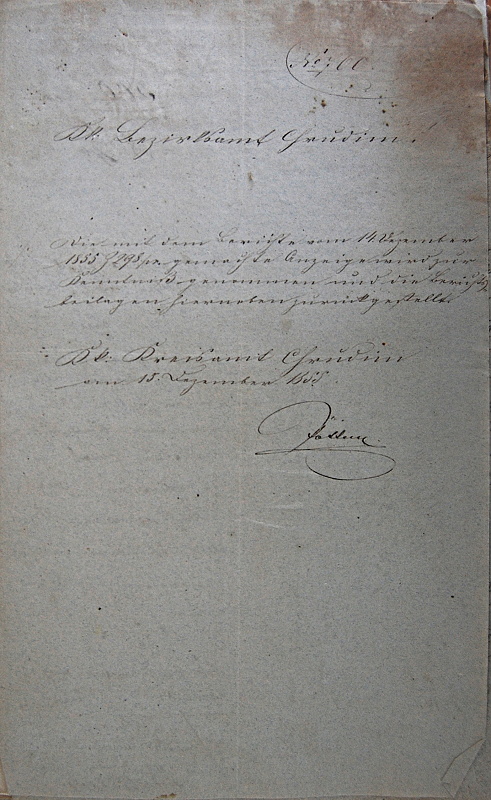 K k: Bezirksamt Chrudim.
Die mit dem Berichte vom 14. Dezember
1855 Z 298 gemachte Anzeige wird zur
Kenntniß genommen und die Berichts
beilagen hierneben zurückgestellt.
K k: Kreisamt Chrudim
am 15. Dezember 1855.